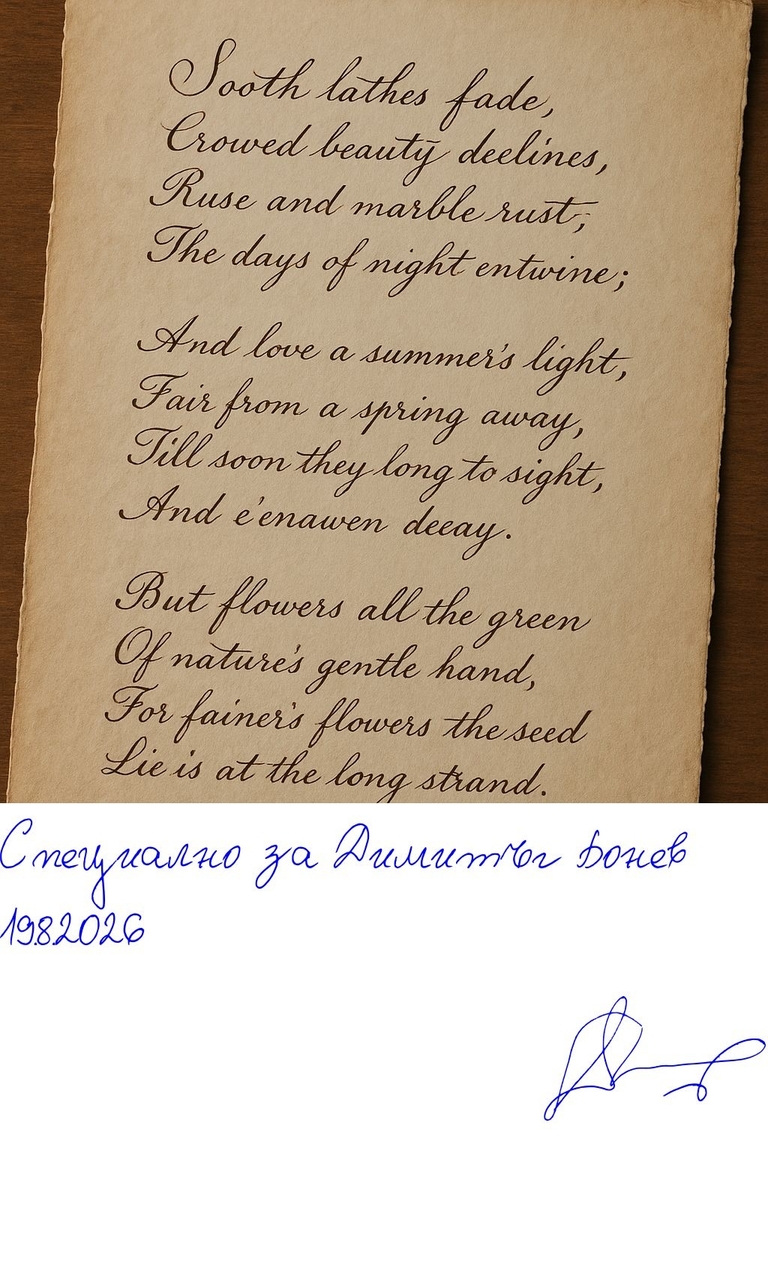 Sooth lathes fade,
Crowed beauty deelines,
Ruse and marble rust;
The days of night entwine;
And love a summer's light,
Fair from a spring away,
Till soon they long to sight,
And e'enawen deeay.
But flowers all the green
Of nature's gentle hand,
For fainer's flowers the seed
Lie is at the long strand.
Специално за Димитъг Бонев
1982026